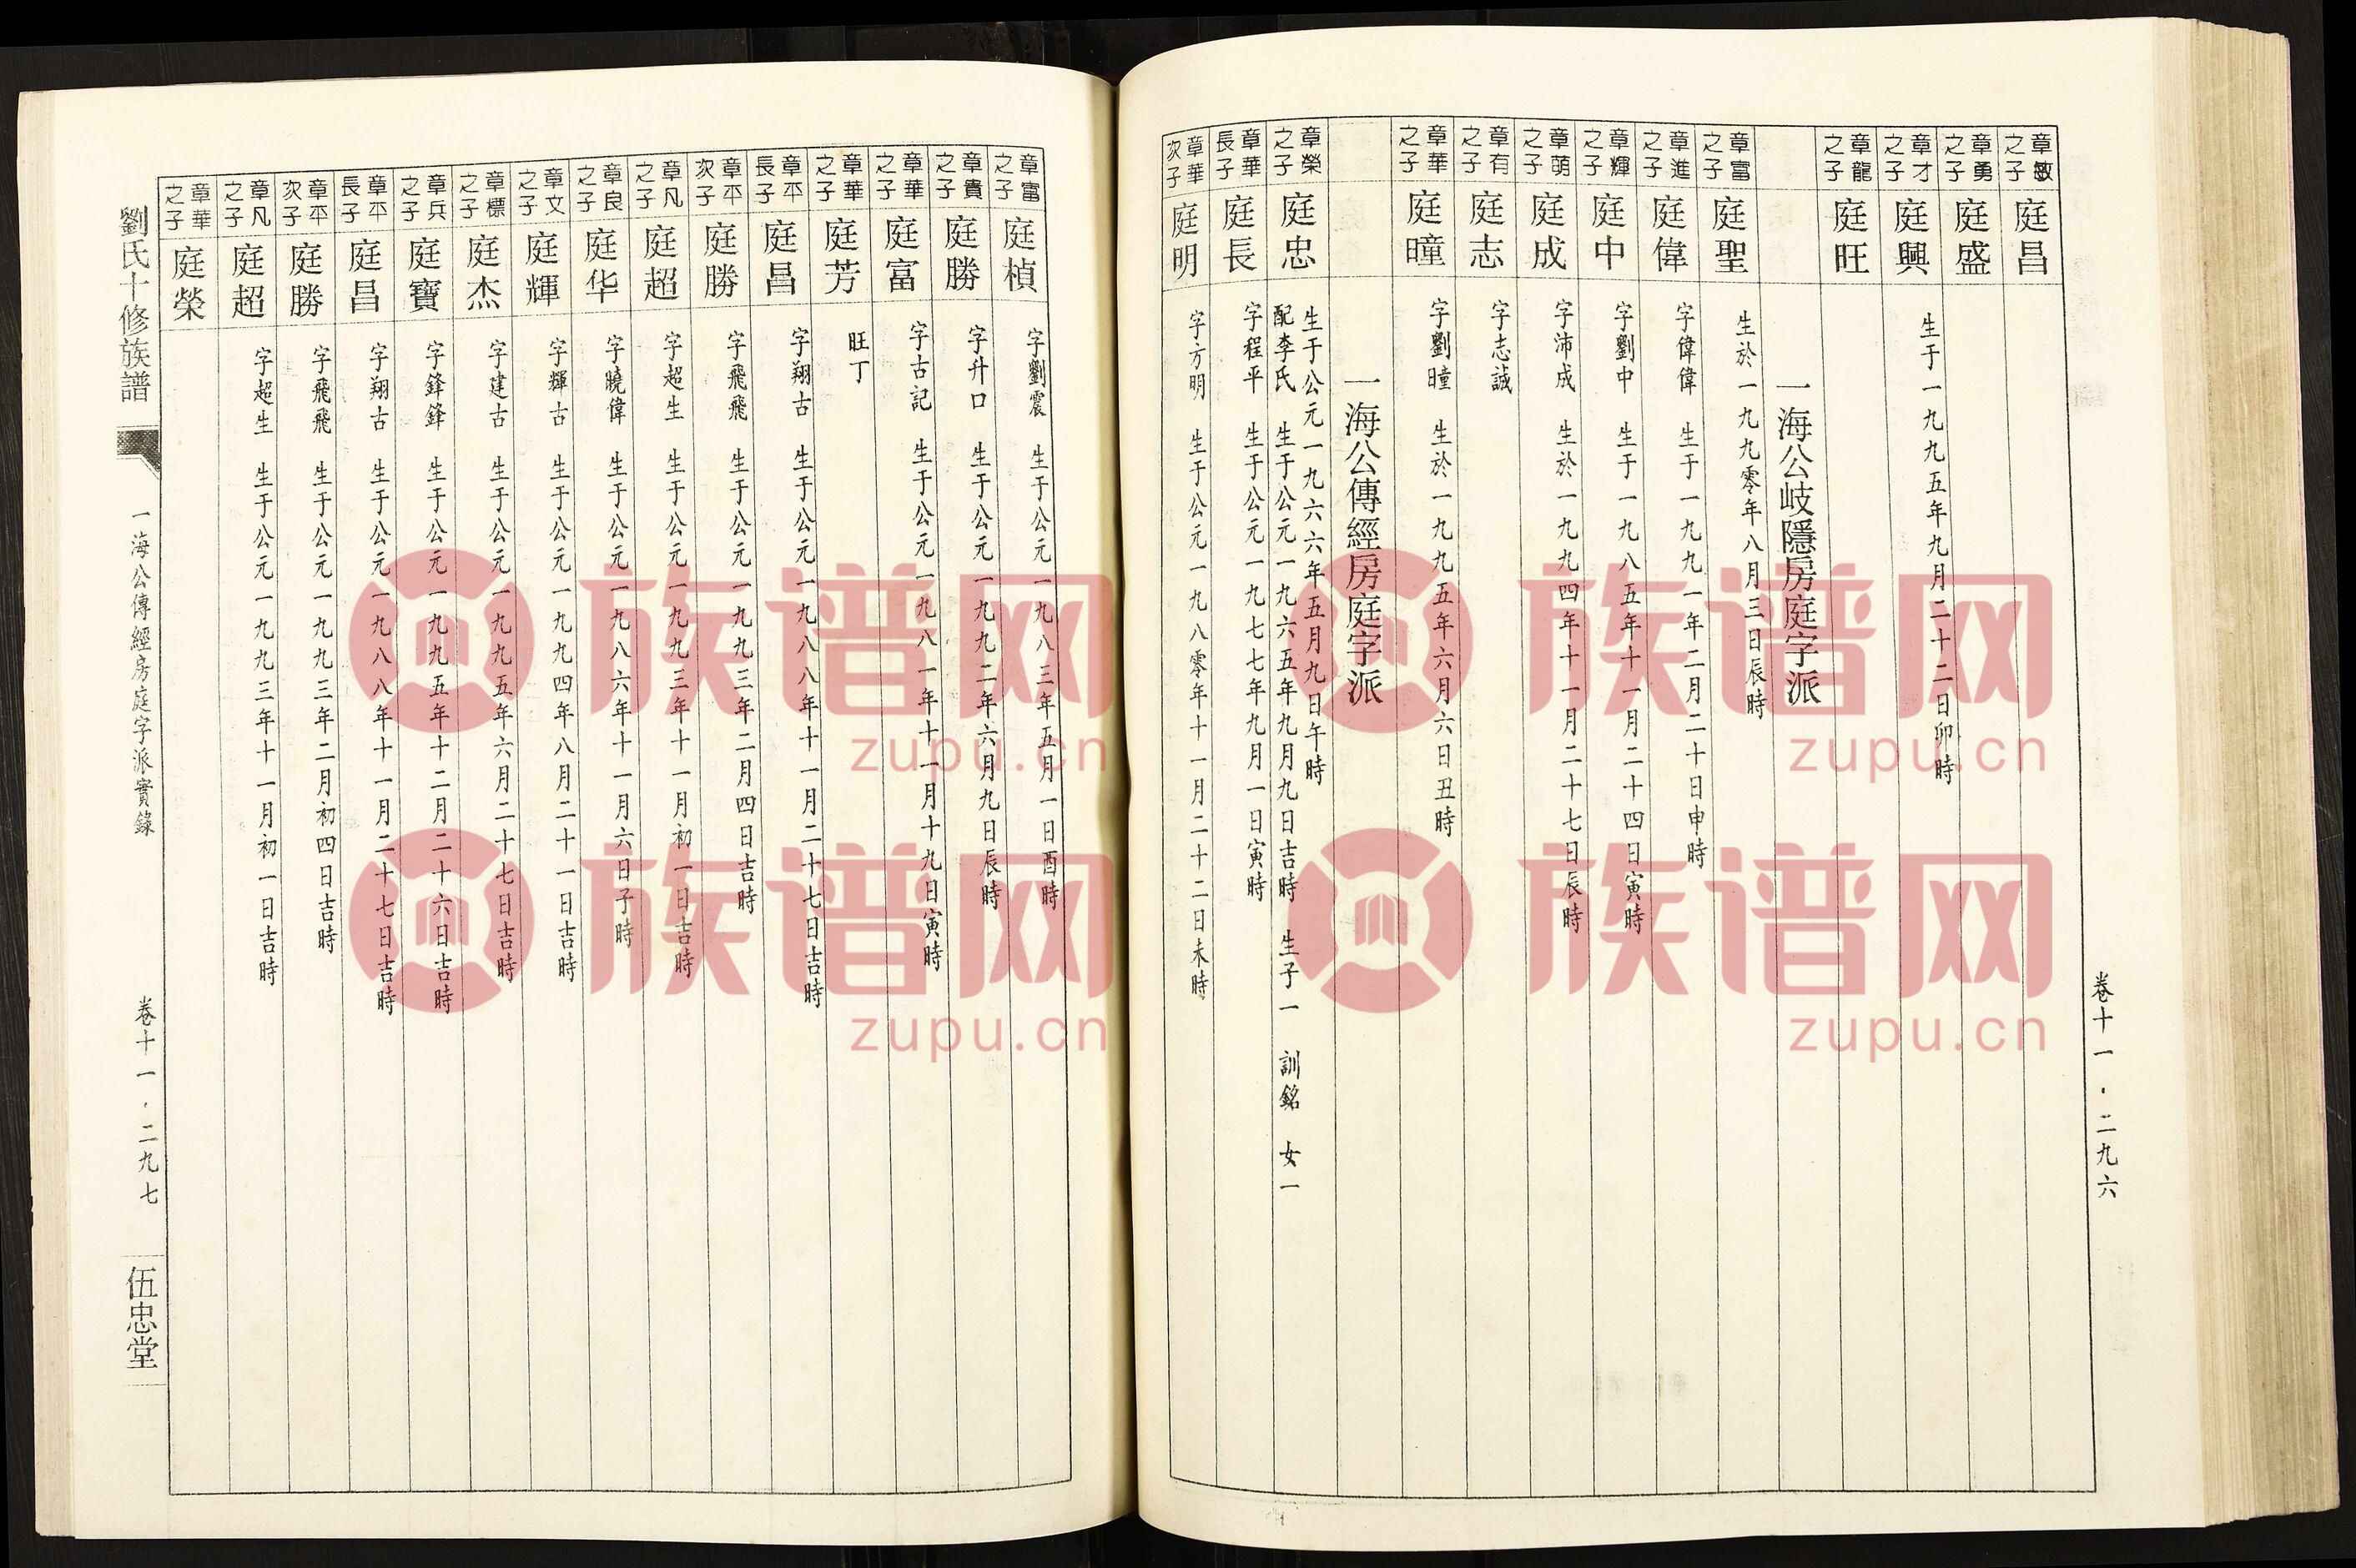 卷十一·二九六
章敏之子 庭昌
章勇之子 庭盛
章才之子 庭興 生于一九九五年九月二十二日卯時
章龍之子 庭旺
一海公岐隱房庭字派
章富之子 庭聖 生於一九九零年八月三日辰時
章進之子 庭偉 字偉偉 生于一九九一年二月二十日申時
章輝之子 庭中 字劉中 生于一九八五年十一月二十四日寅時
章萌之子 庭成 字沛成 生於一九九四年十一月二十七日辰時
章有之子 庭志 字志誠
章華之子 庭曈 字劉曈 生於一九九五年六月六日丑時
一海公傳經房庭字派
章榮之子 庭忠 生于公元一九六六年五月九日午時
配李氏 生于公元一九六五年九月九日吉時 生子一 訓銘 女一
章華長子 庭長 字程平 生于公元一九七七年九月一日寅時
章華次子 庭明 字方明 生于公元一九八零年十一月二十二日未時
章富之子 庭楨 字劉震 生于公元一九八三年五月一日酉時
章貴之子 庭勝 字升口 生于公元一九九二年六月九日辰時
章華之子 庭富 字古記 生于公元一九八一年十一月十九日寅時
章華之子 庭芳 旺丁
章平長子 庭昌 字翔古 生于公元一九八八年十一月二十七日吉時
章平次子 庭勝 字飛飛 生于公元一九九三年二月四日吉時
章凡之子 庭超 字超生 生于公元一九九三年十一月初一日吉時
章良之子 庭华 字曉偉 生于公元一九八六年十一月六日子時
章文之子 庭輝 字輝古 生于公元一九九四年八月二十一日吉時
章標之子 庭杰 字建古 生于公元一九九五年六月二十七日吉時
章兵之子 庭寶 字鋒鋒 生于公元一九九五年十二月二十六日吉時
章平長子 庭昌 字翔古 生于公元一九八八年十一月二十七日吉時
章平次子 庭勝 字飛飛 生于公元一九九三年二月初四日吉時
章凡之子 庭超 字超生 生于公元一九九三年十一月初一日吉時
章華之子 庭榮
劉氏十修族譜 一海公傳經房庭字派實錄 卷十一·二九七 伍忠堂
族谱网
zupu.cn
族谱网
zupu.cn
族谱网
zupu.cn
族谱网
zupu.cn